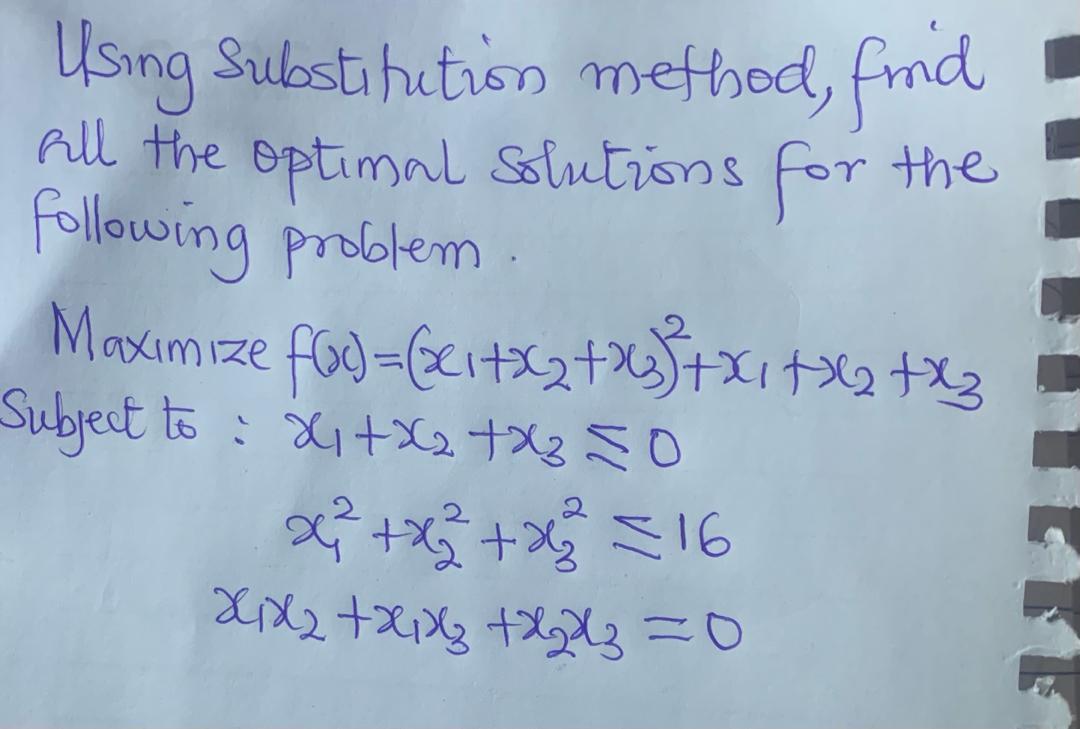 Using Substitution method, find
all the optimal solutions for the
following problem.
Maximize f(x)=(x₁+x₂+x₃)²+x₁+x₂+x₃
Subject to : x₁+x₂+x₃ ≤ 0
x₁²+x₂²+x₃² ≤ 16
x₁x₂+x₁x₃+x₂x₃ = 0